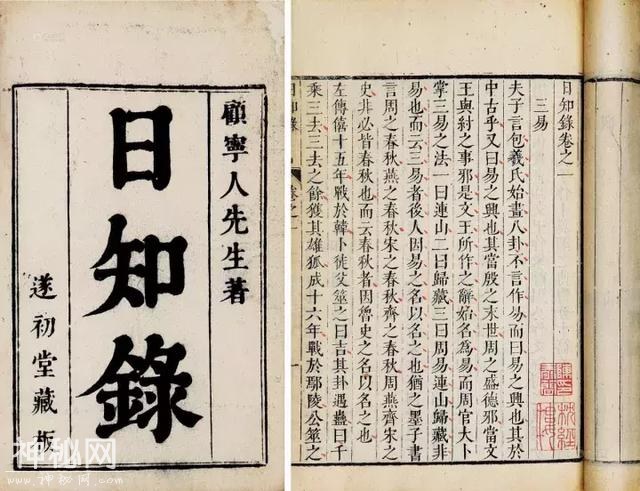 顧寧人先生著
日知錄
遂初堂藏板
日知錄卷之一
三易
夫子言包羲氏始畫八卦不言作易而曰易之興也其於
中古乎又曰易之興也其當殷之末世周之盛德邪當文
王與紂之事邪是文王所作之辭始名為易而周官大卜
掌三易之法一曰連山二曰歸藏三曰周易連山歸藏非
易也而云三易者後人因易之名以名之也猶之墨子書
言周之春秋燕之春秋宋之春秋齊之春秋周燕齊宋之
史非必皆春秋也而云春秋者因魯史之名以名之也
左傳僖十五年戰於韓卜徒父筮之曰吉其卦遇蠱曰千
乘三去三去之餘獲其雄狐成十六年戰於鄢陵公筮之
日知錄
卷之一
神秘网